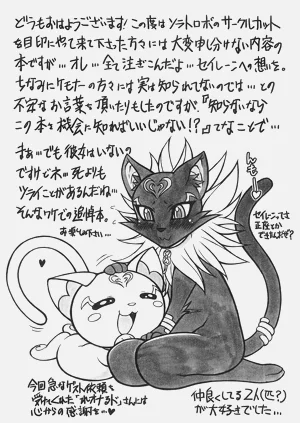 どうもおはようございます!この度はソラトロボのサークルカット
を目印にやって来て下さった方々には大変申し分けない内容の
本ですが…オレ…全て注ぎこんだよ…セイレーンへの想いを。
ちなみにケモナーの方々には実は知られてないのでは…との
不安なお言葉を頂いたりもしたのですが、『知らないなら
この本を機会に知ればいいじゃない!?』てなことで…
すぁ…でも彼女はいないの
ですけど木…死よりも
ツライことがあるんだね…
そんなワケでの追悼本。
お楽しみ下さい…
んもー
セイレーンって
正座とか
できんのかぞ?
今回急なゲスト依頼を
受けてくれた「ネオナルド」さんには
心からの感謝を…♥
仲良くしてる2人(匹?)
が大好きでした…